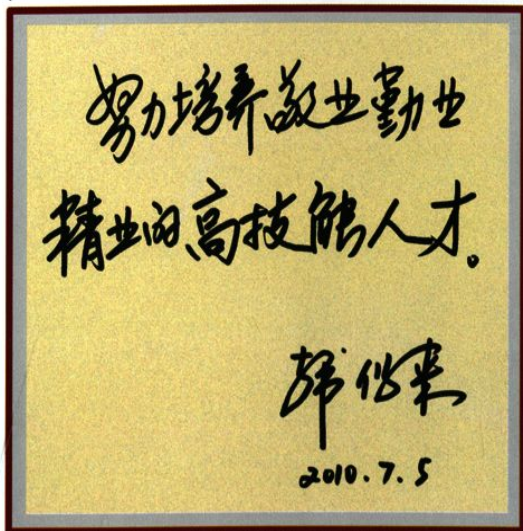 努力培养敬业勤业
精业的高技能人才。
2010.7.5